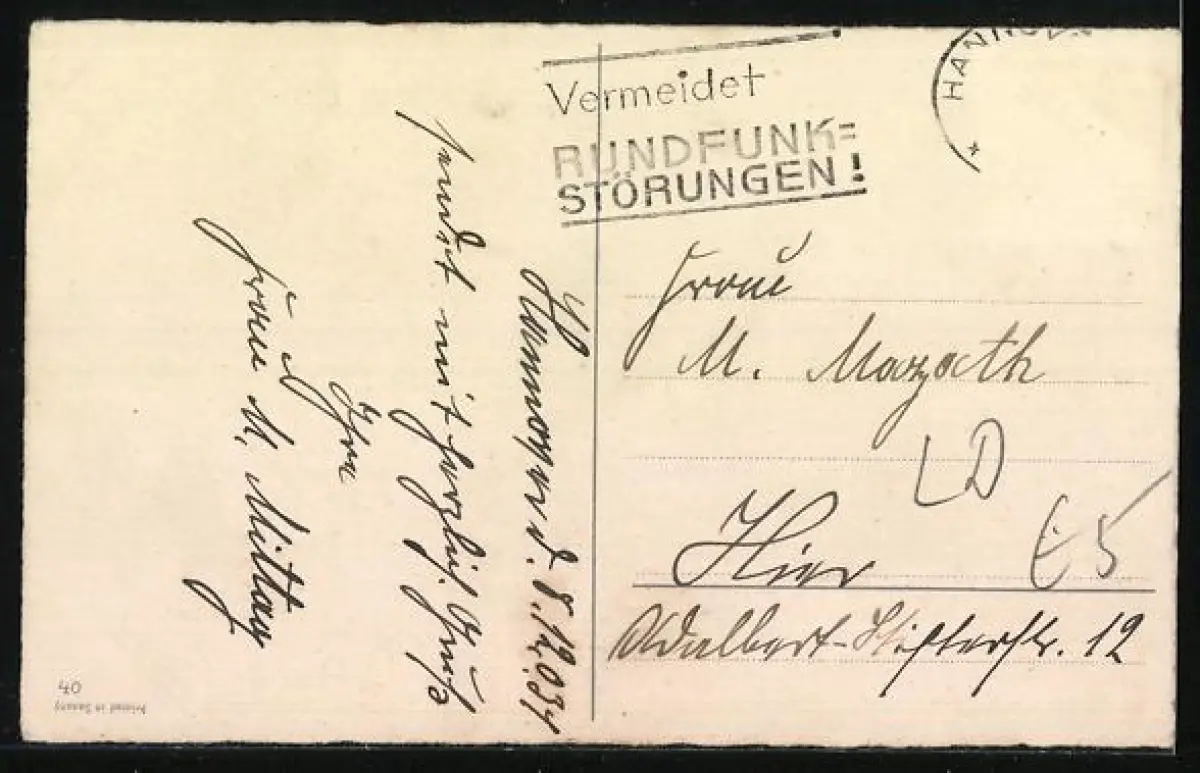 Vermeidet
RUNDFUNK=
STÖRUNGEN!
HANNOV
Hannover d. 8.12.034
sendet mit herzlich. Gruß
Ihre
Frau M. Mittag
Frau
M. Mazath
LD
Hier
E5
Adalbert-Stifterstr. 12
04
Printed in Saxony